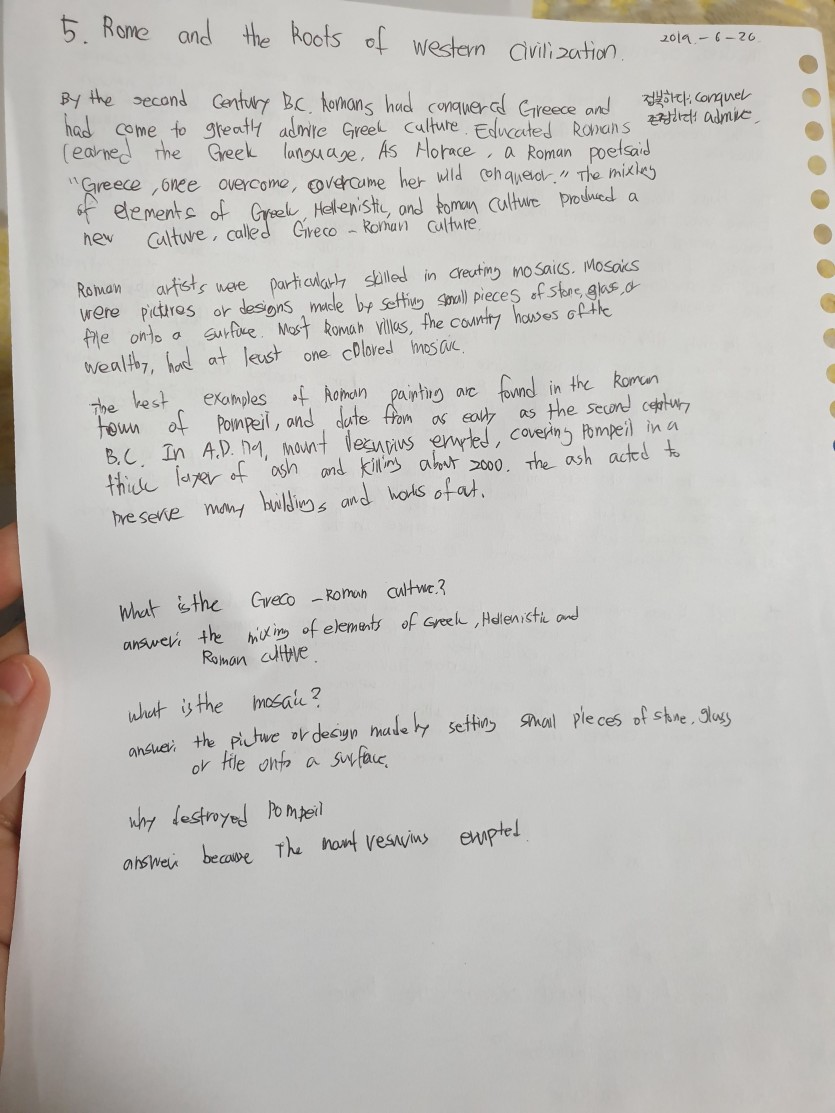 5. Rome and the Roots of western Civilization.
2019-6-26
By the second Century B.C. Romans had conquered Greece and
정복하다: conquer
had come to greatly admire Greek culture. Educated Romans
존경하다: admire.
learned the Greek language, As Horace, a Roman poetsaid
"Greece, once overcome, overcame her wild conqueror." The mixing
of elements of Greek, Hellenistic, and Roman culture produced a
new culture, called Greco-Roman culture.
Roman artists were particularly skilled in creating mosaics. Mosaics
were pictures or designs made by setting small pieces of stone, glas, or
tile onto a surface. Most Roman villas, the country houses of the
wealthy, had at least one colored mosaic.
The best examples of Roman painting are found in the Roman
town of Pompeil, and date from as early as the second century
B.C. In A.D. 79, mount Vesuvius erupted, covering Pompeil in a
thick layer of ash and killing about 2000. The ash acted to
preserve many buildings and works of art.
What is the Greco-Roman culture?
answer: the mixing of elements of Greek, Hellenistic and
Roman culture.
what is the mosaic?
answer: the picture or design made by setting small pieces of stone, glass
or tile onto a surface.
why destroyed Pompeil
answer: because The mant vesuvius erupted.